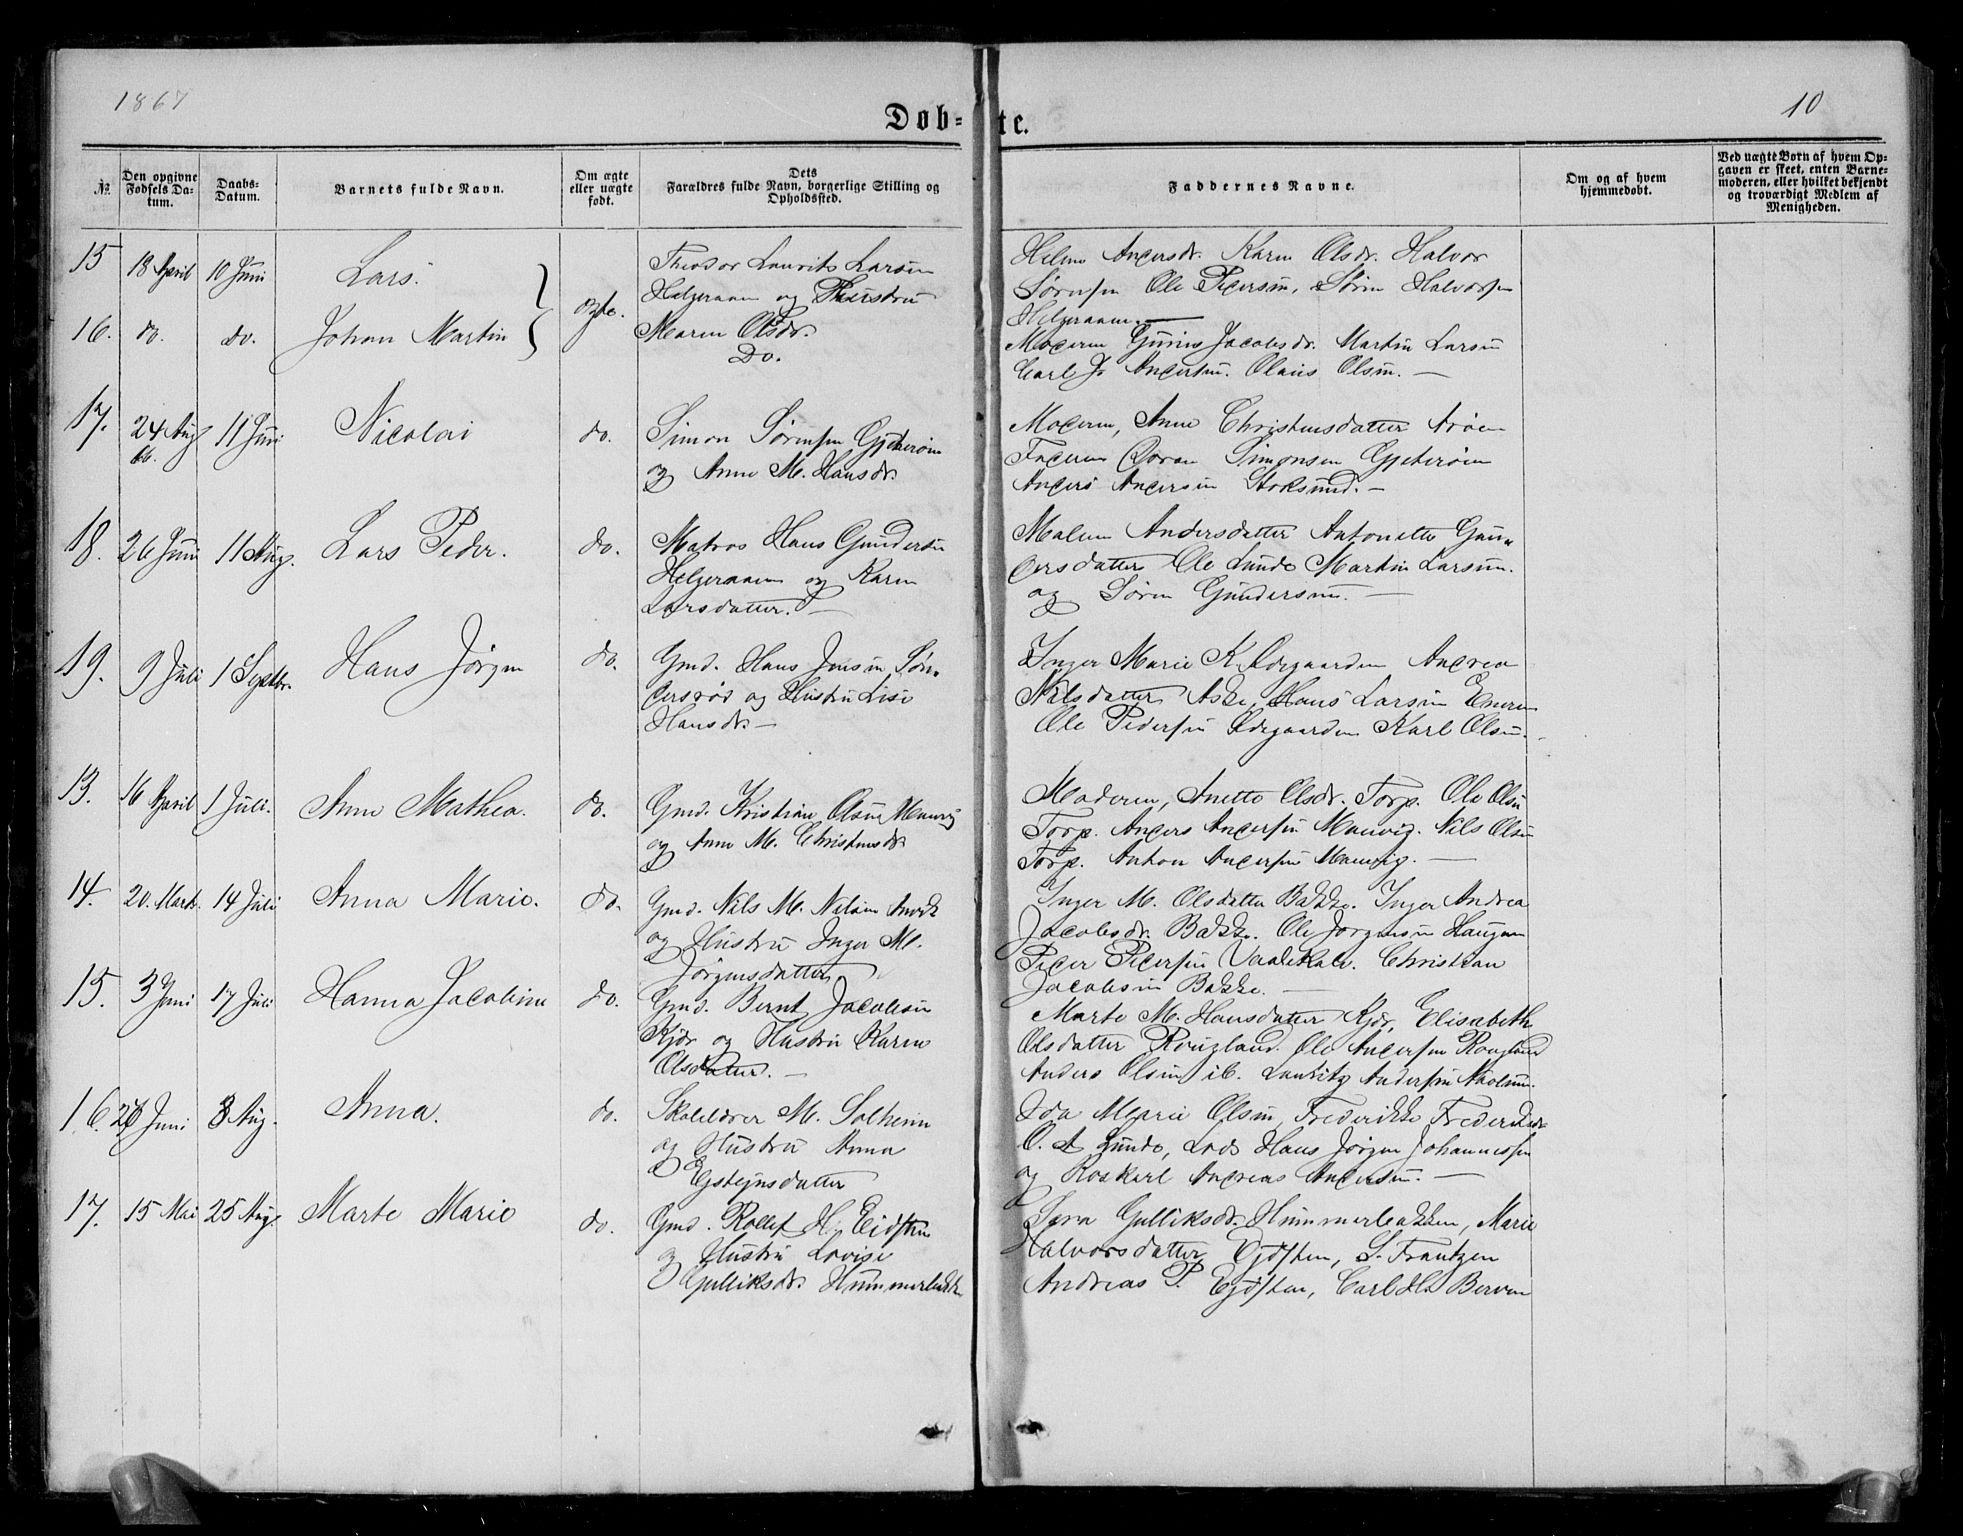 1867
10
Døb=te.
№
Den opgivne Fødsels Da-tum.
Daabs-Datum.
Barnets fulde Navn.
Om ægte eller uægte født.
Dets Farældres fulde Navn, borgerlige Stilling og Opholdssted.
Faddernes Navne.
Om og af hvem hjemmedøbt.
Ved uægte Børn af hvem Op-gaven er skeet, enten Barne-moderen, eller hvilket bekjendt og troværdigt Medlem af Menigheden.
15 18 April 10 Juni Lars. ægte.
Theodor Laurits Larsen
Helgeraaen og Hustru
Maren Olsdr.
Helene Andersdr. Karen Olsdr. Halvor
Sørensen Ole Pedersen, Søren Halvorsen
Helgeraaen.
16. do. do. Johan Martin
Do.
Moderen Gunild Jacobsdr. Martin Larsen
Carl J. Andersen. Olaus Olsen. —
17. 24 Aug 66. 11 Juni Nicolai do.
Simon Sørensen Gjeterøen
og Anne M. Hansdr.
Moderen, Anne Christensdatter Arøen
Faderen Simonsen Gjeterøen
Anders Andersen Stoksund. —
18. 26 Juni 11 Aug. Lars Peder. do.
Matros Hans Gundersen
Helgeraaen og Karen
Larsdatter. —
Malene Andersdatter Antonette Gun-
dersdatter Ole Lunde Martin Larsen.
og Søren Gundersen. —
19. 9 Juli 1 Septbr. Hans Jørgen do.
Gmd. Hans Jensen Søn-
dersrød og Hustru Lise
Hansdr. —
Inger Marie K. Ødegaarden Andrea
Nilsdatter Aske, Hans Larsen
Ole Pedersen Ødegaarden Karl Olsen.
13. 16 April 1 Juli. Anne Mathea. do.
Gmd. Kristian Olsen Manvig
og Anne M. Christensdr.
Moderen, Anette Olsdr. Torp. Ole Olsen
Torp. Anders Andersen Manvig. Nils Olsen
Torp. Anton Andersen Manvig. —
14. 20. Marts. 14 Juli Anna Marie. do.
Gmd. Nils M. Nilsen
og Hustru Inger M.
Jørgensdatter
Inger M. Olsdatter Bakke. Inger Andrea
Jacobsdr. Bakke. Ole Jørgensen Haugen
Peder Pedersen Christian
Jacobsen Bakke. —
15. 3 Juni 17 Juli Hanna Jacobine do.
Gmd. Bernt Jacobsen
Kjær og Hustru Karen
Olsdatter. —
Marte M. Hansdatter Kjær, Elisabeth
Olsdatter Rougland. Ole Andersen Rougland
Anders Olsen ib. Lauritz Andersen
16. 26 Juni 3 Aug. Anna. do.
Skolelærer M. Solheim
og Hustru Anna
Eysteynsdatter
Ida Marie Olsen, Frederikke
O. A Lunde, Lods Hans Jørgen Johannessen
og Andreas Andersen. —
17. 15 Mai 25 Aug. Marte Marie do.
Gmd. Rollef H. Eidsten
og Hustru Lovise
Gulliksdr. Hummerbakken
Sara Gulliksdr. Hummerbakken, Marie
Halvorsdatter Ejdsten, S. Frantzen
Andreas P. Ejdsten, Carl Berven